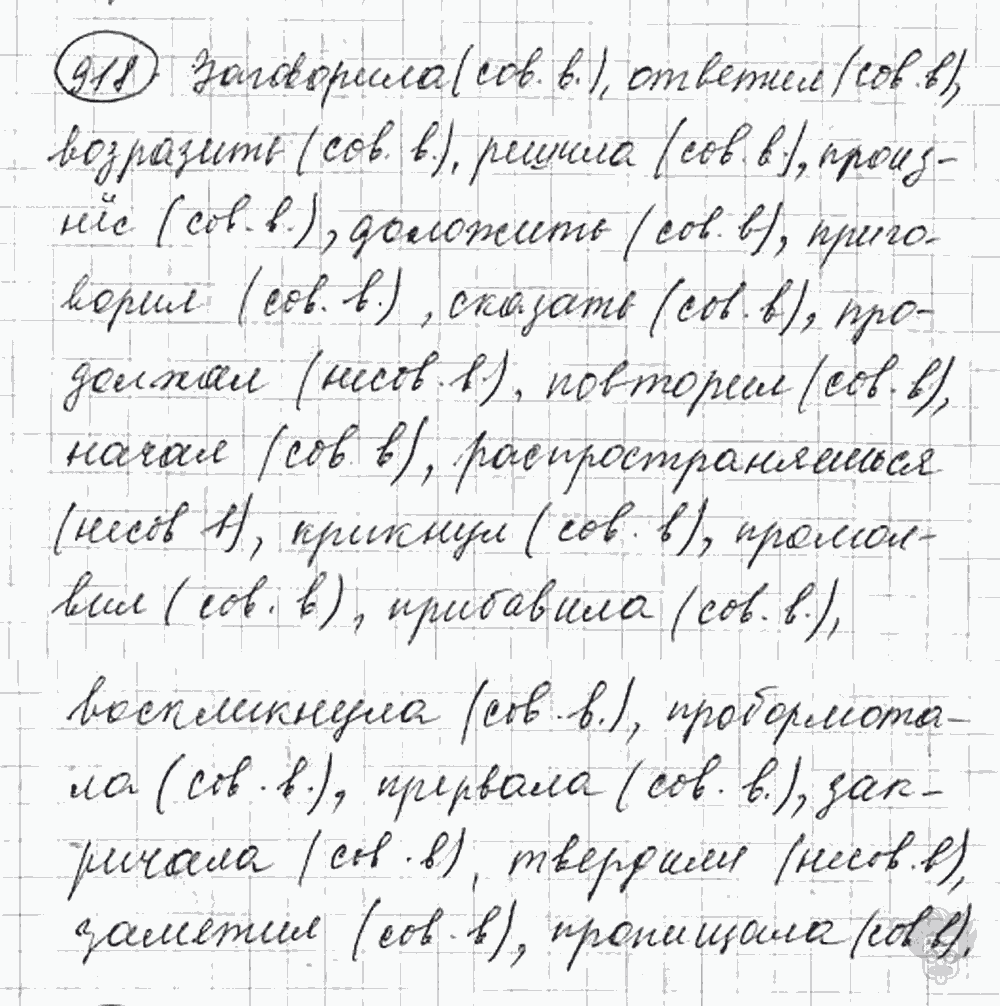 918. Заговорила (сов. в.), ответил (сов. в),
возразить (сов. в.), решила (сов. в.), произ-
нёс (сов. в.), доложить (сов. в), приго-
ворил (сов. в.), сказать (сов. в), про-
должал (несов. в.), повторил (сов. в),
начал (сов в), распространяешься
(несов в), крикнул (сов. в), промол-
вил (сов. в), прибавила (сов. в.),
воскликнула (сов. в.), пробормота-
ла (сов. в.), прервала (сов. в.), зак-
ричала (сов. в), твердили (несов. в),
заметил (сов. в), пропищала (сов в),